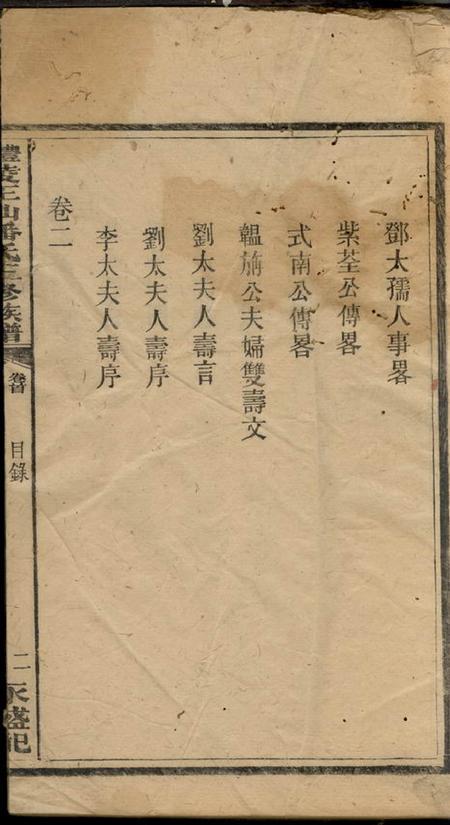 鄧太孺人事畧
紫荃公傳畧
式南公傳畧
韞旃公夫婦雙壽文
劉太夫人壽言
劉太夫人壽序
李太夫人壽序
卷二
醴陵王仙潘氏三修族譜
卷首
目錄
二
永盛祀